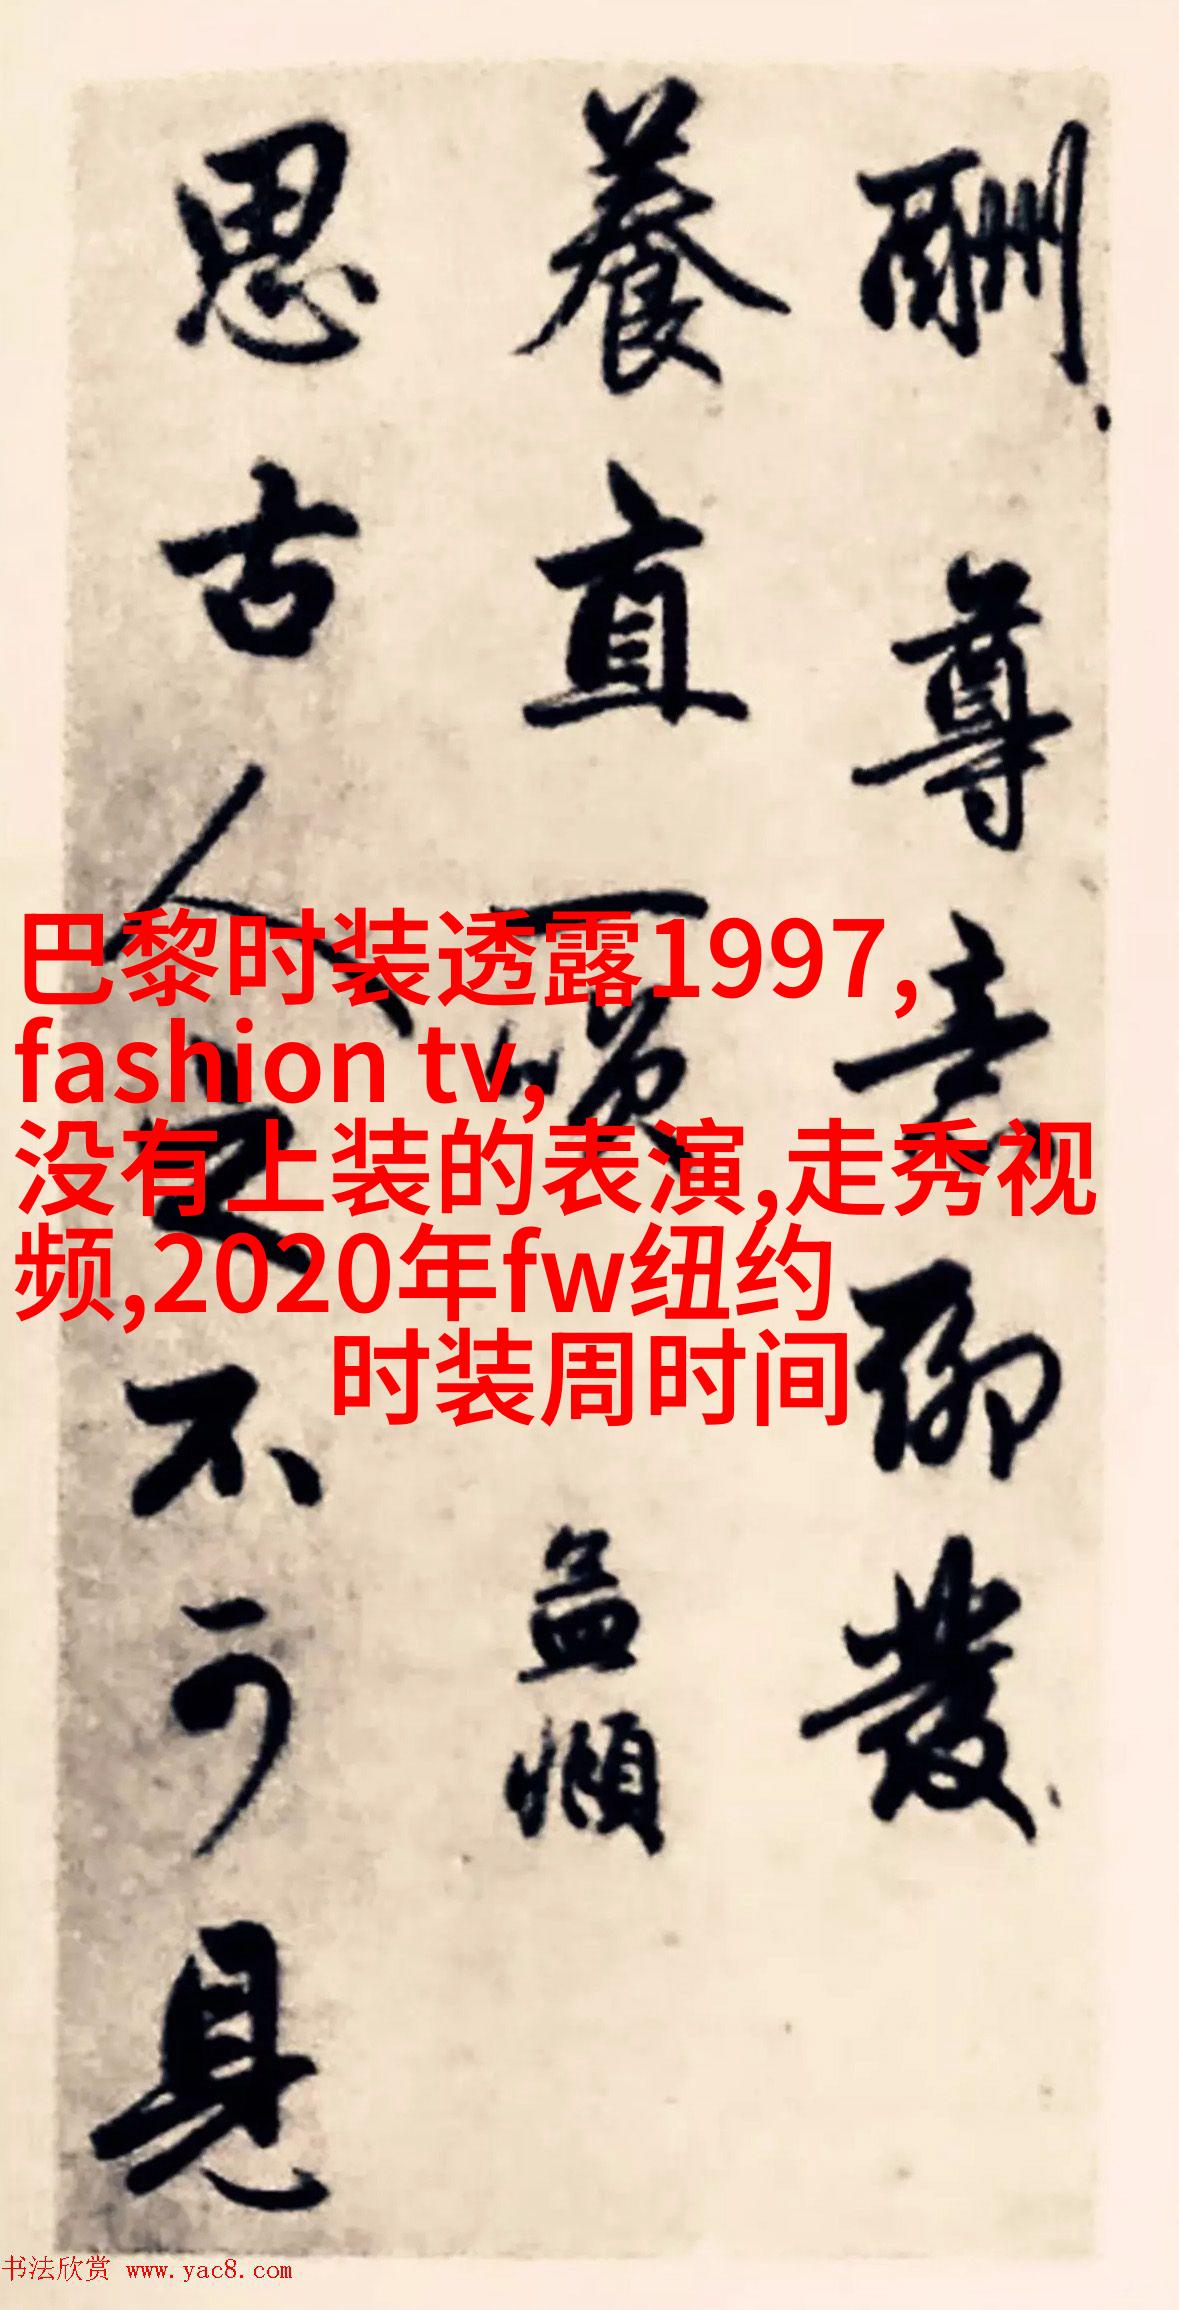 酬尊意聊發
養直一噱孟頫
思古人之不可見
巴黎时装透露1997,
fashion tv,
没有上装的表演,走秀视
频,2020年fw纽约
时装周时间
书法欣赏 www.yac8.com